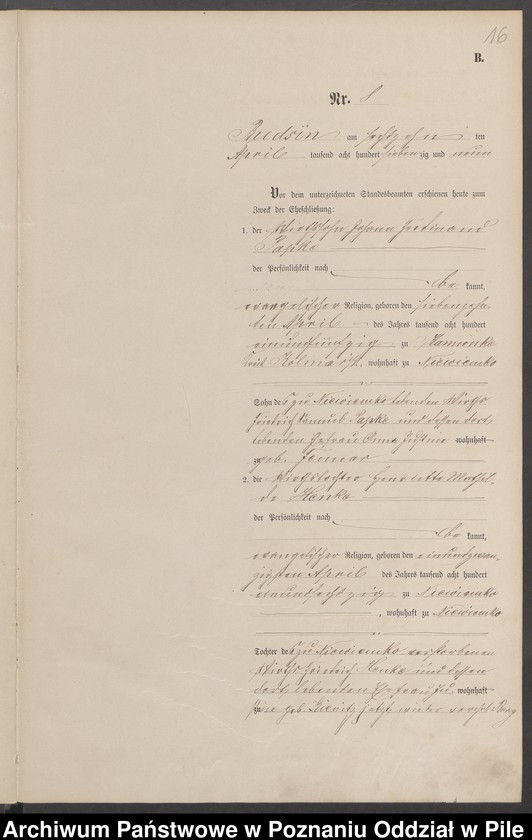 16
B.
Nr. 8
Budsin am sechszehn ten
April tausend acht hundert siebenzig und neun
Vor dem unterzeichneten Standesbeamten erschienen heute zum
Zweck der Eheschließung:
1. der Wirthssohn Johann Ferdinand
Papke
der Persönlichkeit nach
be kannt,
evangelischer Religion, geboren den siebenzehn-
ten April des Jahres tausend acht hundert
einundfünfzig zu Kamionke
Kreis Kolmar i/P., wohnhaft zu Niewiemko
Sohn des zu Niewiemko lebenden Wirths
Friedrich Samuel Papke und dessen dort
lebenden Ehefrau Anna Justine wohnhaft
zu geb.
2. die Wirthstochter Henriette Mathil-
de Henke
der Persönlichkeit nach
be kannt,
evangelischer Religion, geboren den einundzwan-
zigsten April des Jahres tausend acht hundert
einundsechszig zu Niewiemko
, wohnhaft zu Niewiemko
Tochter des zu Niewiemko verstorbenen
Wirths Friedrich Henke und dessen
dort lebenden Ehefrau Ju- wohnhaft
zu stine geb. jetzt wieder
Archiwum Państwowe w Poznaniu Oddział w Pile